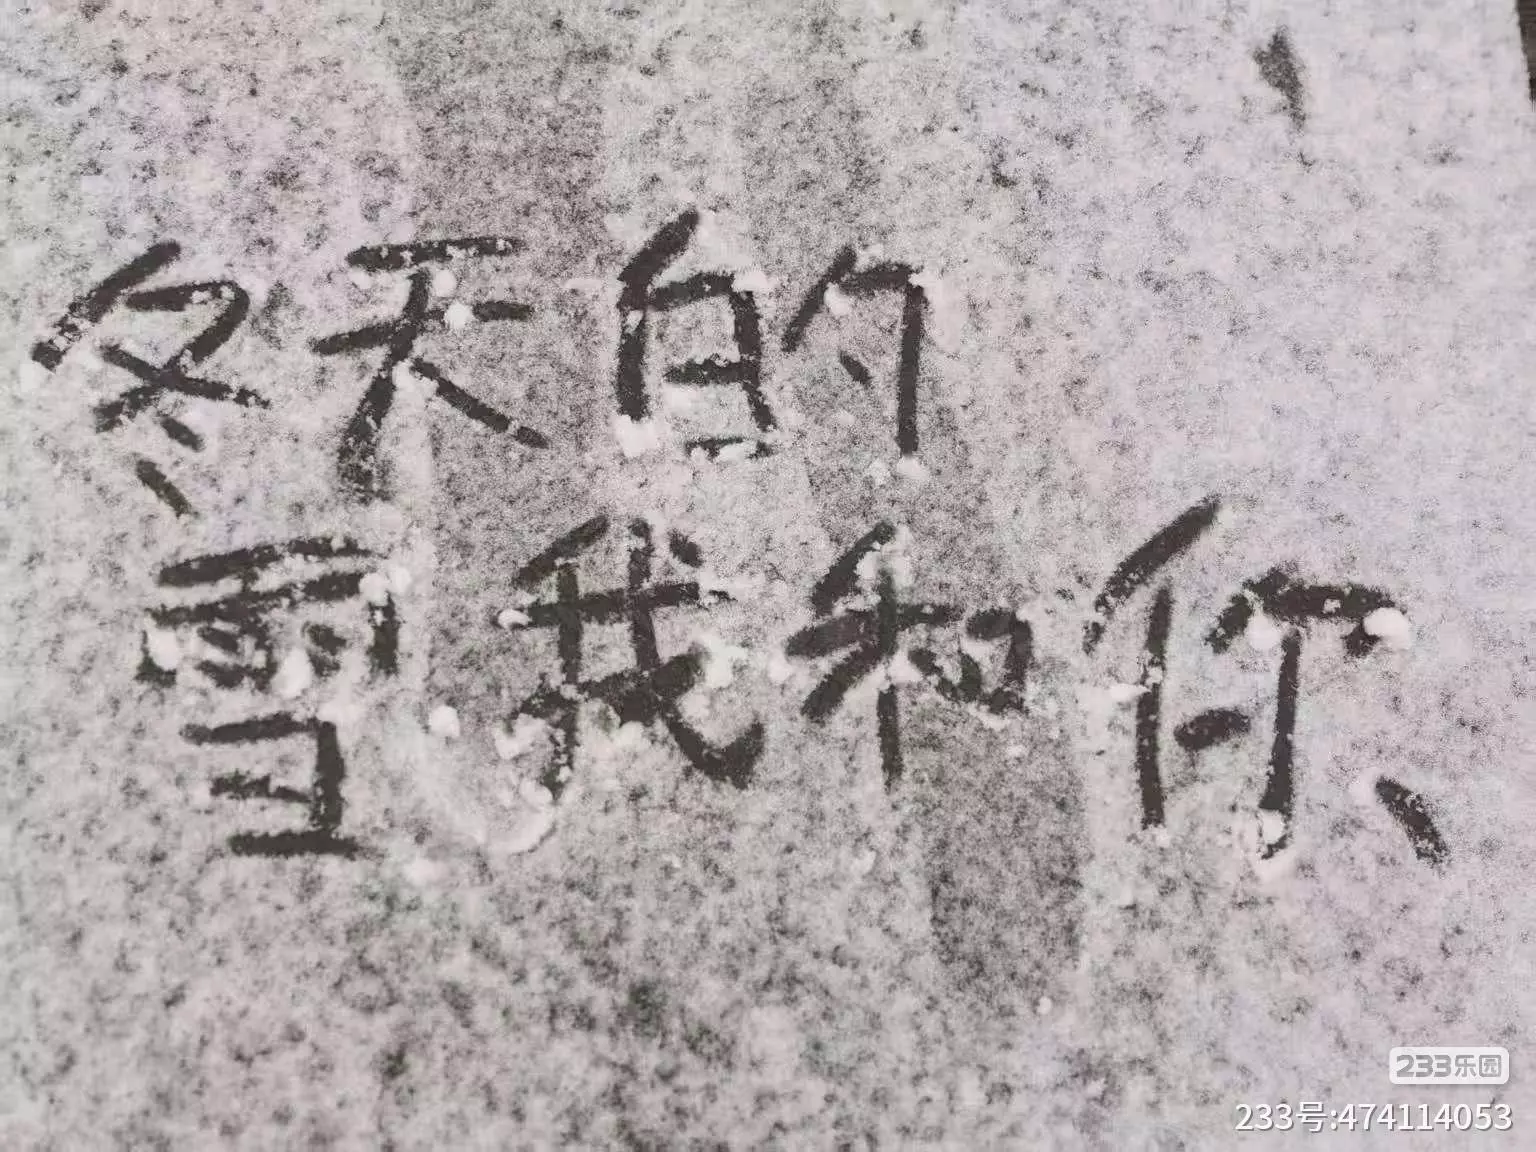 冬天的
雪我和你
233乐园
233号:474114053